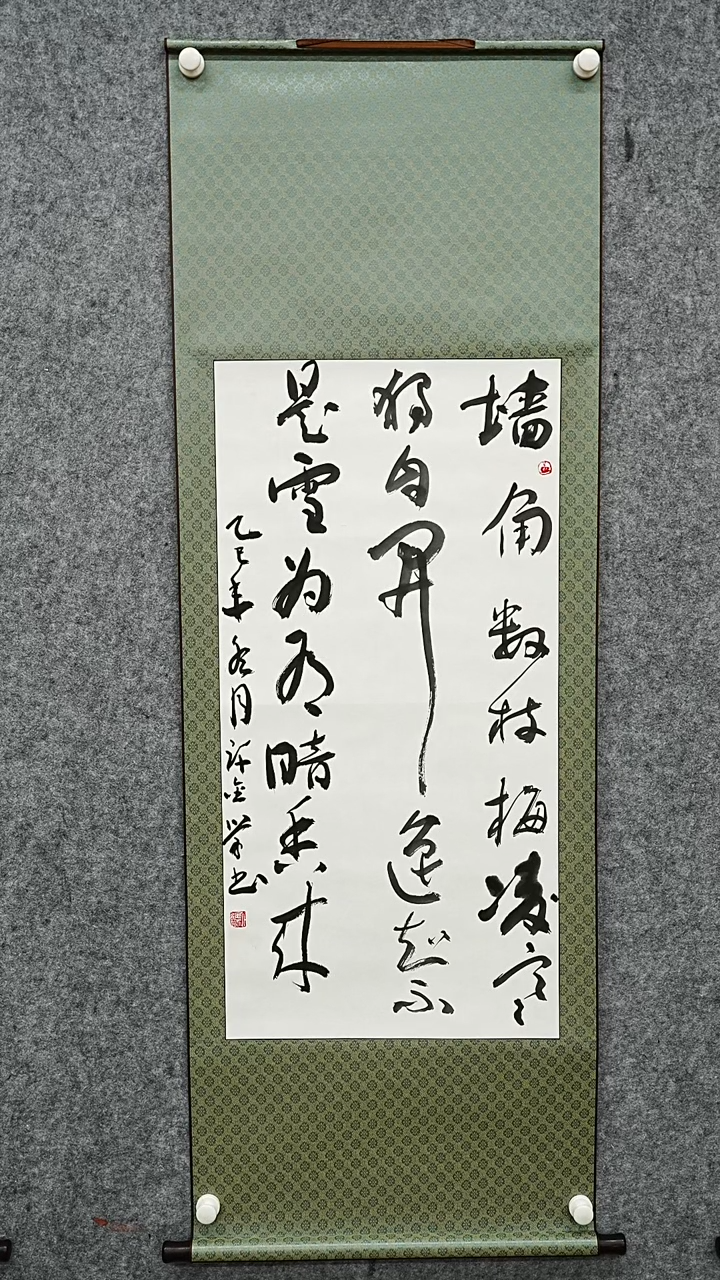 墙角数枝梅凌寒
独自開遥知不
是雪为有暗香来
乙巳年冬月许金荣书